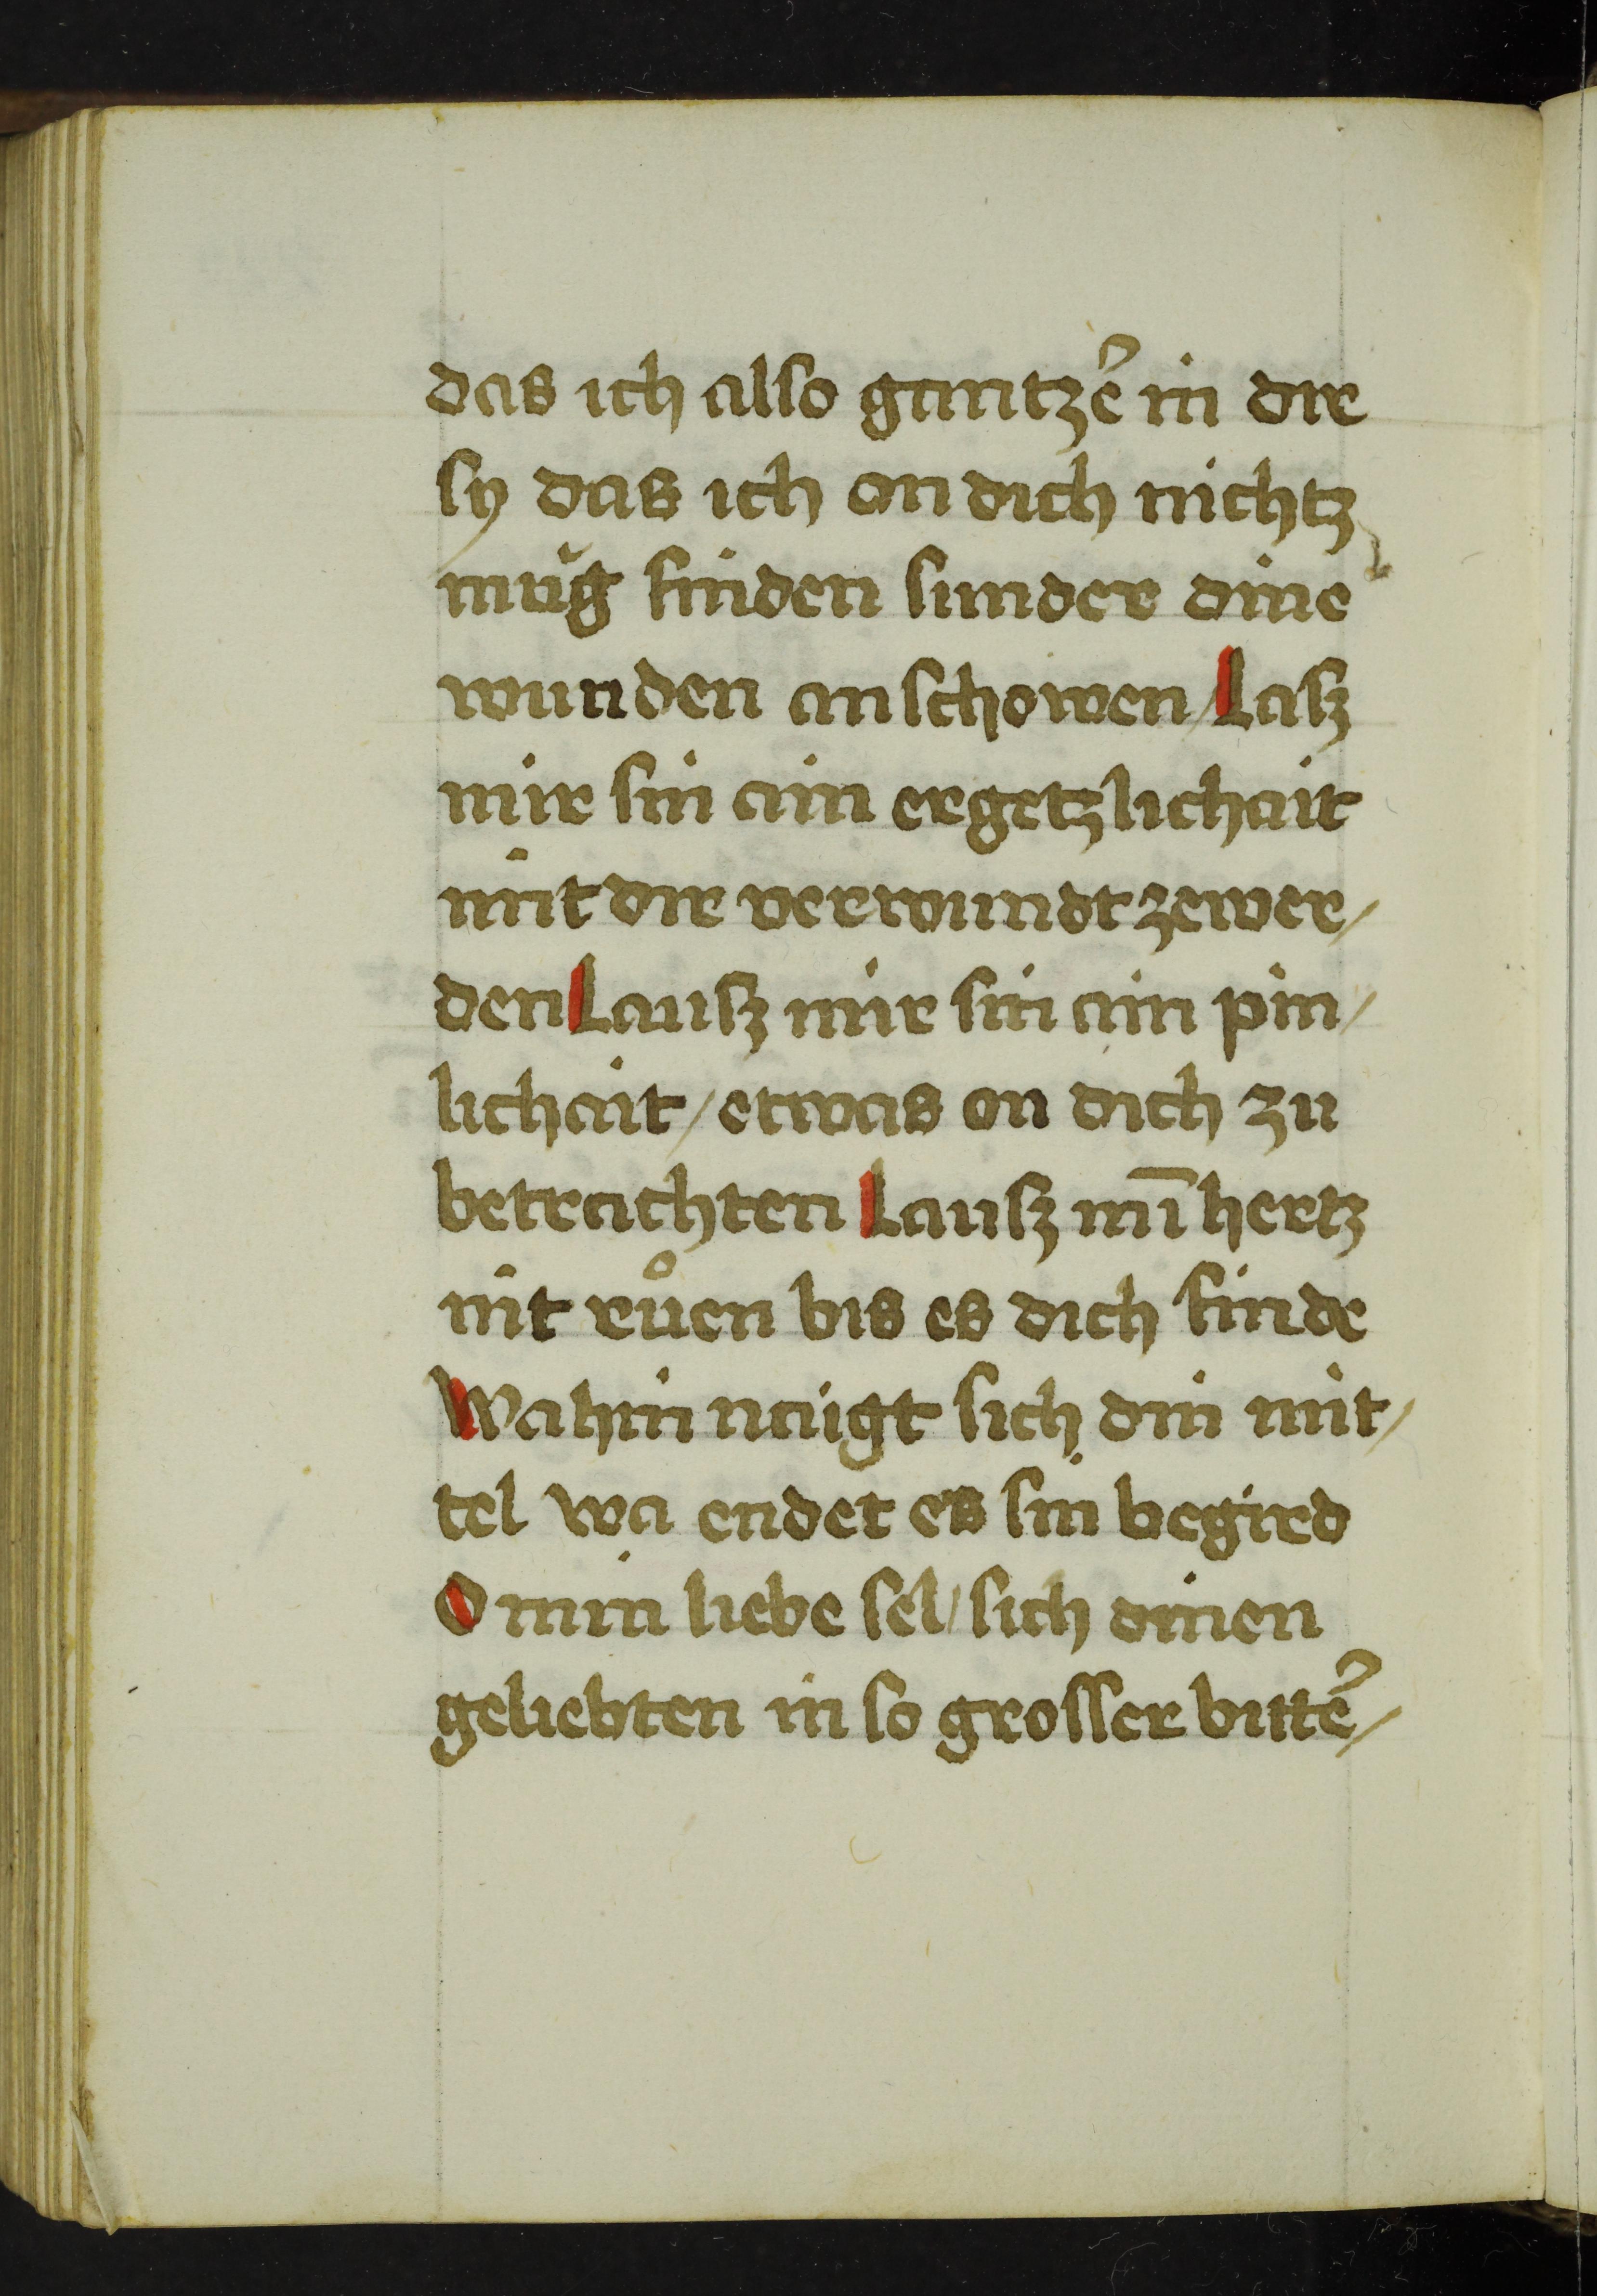 das ich also gantzeˀ in dir
sy das ich on dich nichtz
mùg finden sunder dine
wunden anschowen / Lasz
mir sin ain ergetzlichait
mit dir verwundt zewer /
den Lausz mir sin ain pin /
lichait / etwas on dich zu
betrachten Lausz mī hertz
nit růen bis es dich finde
Wahin naigt sich din mit /
tel wa endet es sin begird
O min liebe sel / sich dinen
geliebten in so grosser bitteˀ /